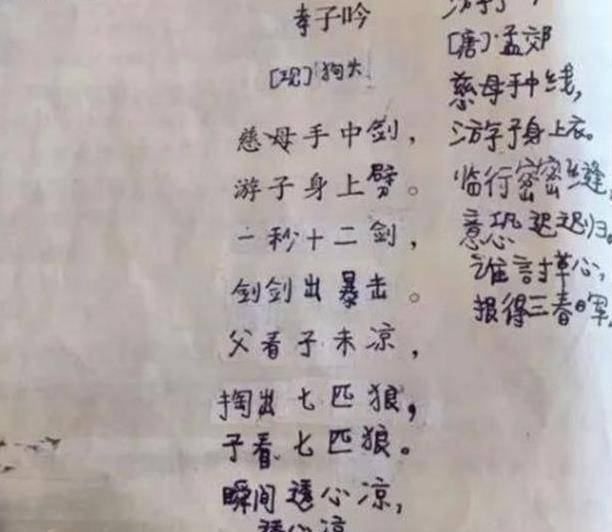 孝子吟
[现]狗
慈母手中剑，
游子身上劈。
一秒十二剑，
剑剑出暴击。
父看子未凉，
掏出七匹狼，
子看七匹狼。
瞬间透心凉，
透心凉
[唐]孟郊
慈母手中线，
游子身上衣。
临行密密缝，
意恐迟迟归。
谁言寸草心，
报得三春晖，